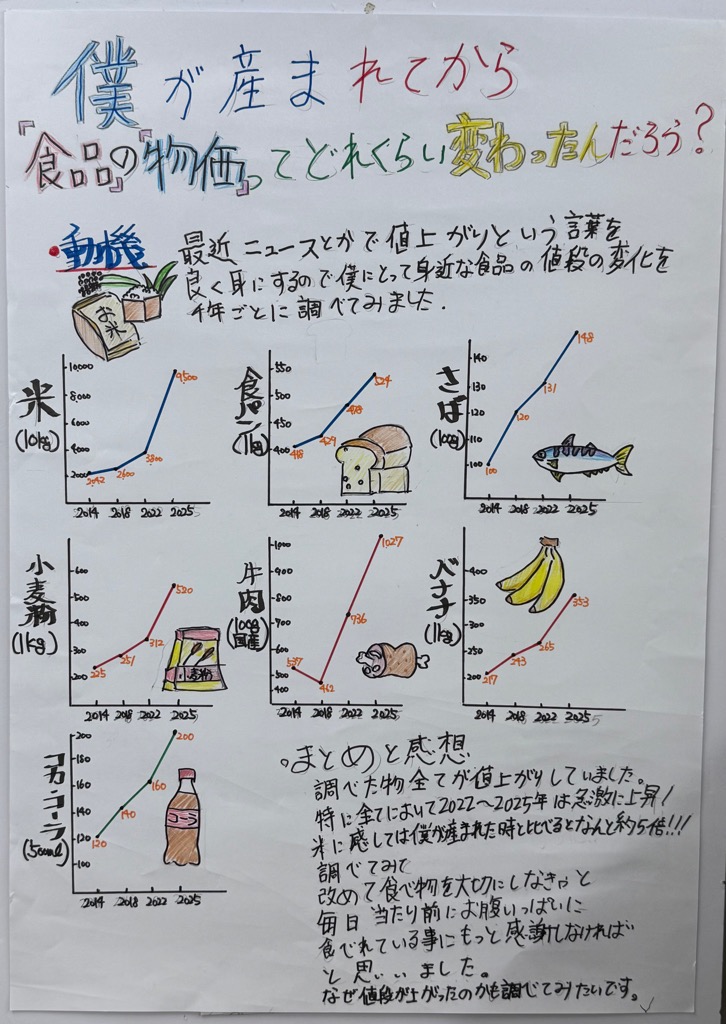 僕が産まれてから
『食品』の『物価』ってどれくらい変わったんだろう？
・動機
最近ニュースとかで値上がりという言葉を
良く身にするので僕にとって身近な食品の値段の変化を
4年ごとに調べてみました.
お米
米
(10kg)
10,000
8,000
6,000
4000
2000
2042
2600
3800
9,500
2014 2018 2022 2025
食パン
(1kg)
550
500
450
400
418
429
478
524
2014 2018 2022 2025
さば
(100g)
140
130
120
110
100
100
120
131
148
2014 2018 2022 2025
小麦粉
(1kg)
600
500
400
300
200
225
251
312
520
小麦粉
2014 2018 2022 2025
牛肉
(100g
国産)
1000
900
800
700
600
500
400
537
462
736
1027
2014 2018 2022 2025
バナナ
(1kg)
400
350
300
250
200
217
243
265
353
2014 2018 2022 2025
コカ・コーラ
(500ml)
200
180
160
140
120
100
120
140
160
200
コーラ
2014 2018 2022 2025
・まとめと感想
調べた物全てが値上がりしていました。
特に全てにおいて2022～2025年は急激に上昇！
米に感しては僕が産まれた時と比べるとなんと約5倍!!!
調べてみて
改めて食べ物を大切にしなきゃと
毎日当たり前にお腹いっぱいに
食べれている事にもっと感謝しなければ
と思いました。
なぜ値段が上がったのかも調べてみたいです。